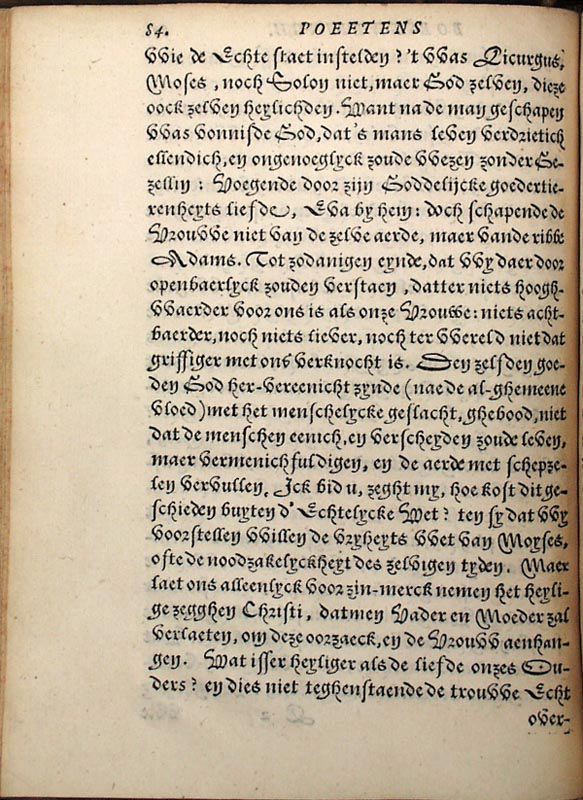 84. POEETENS
VVie de Echte staet instelden? 't VVas Licurgus,
Moses, noch Solon niet, maer God zelven, dieze
oock zelven heylichden. Want na de man geschapen
VVas vonnisde God, dat's mans leven verdrietich
ellendich, en ongenoeglyck zoude VVezen zonder Ge-
zellin: Voegende door zijn Goddelijcke goedertie-
renheyts liefde, Eva by hem: doch schapende de
VrouVVe niet van de zelve aerde, maer vande ribbe
Adams. Tot zodanigen eynde, dat VVy daer door
openbaerlyck zouden verstaen, datter niets hoogh-
VVaerder voor ons is als onze VrouVVe: niets acht-
baerder, noch niets liever, noch ter VVereld niet dat
griffiger met ons verknocht is. Den zelfden goe-
den God her-vereenicht zynde (nae de al-ghemeene
vloed) met het menschelycke geslacht, ghebood, niet
dat de menschen eenich, en verscheyden zoude leven,
maer vermenichfuldigen, en de aerde met schepze-
len vervullen. Ick bid u, zeght my, hoe kost dit ge-
schieden buyten d' Echtelycke Wet? ten sy dat VVy
voorstellen VVillen de vryheyts VVet van Moyses,
ofte de noodzakelyckheyt des zelvigen tyden. Maer
laet ons alleenlyck voor zin-merck nemen het heyli-
ge zegghen Christi, datmen Vader en Moeder zal
verlaeten, om deze oorzaeck, en de VrouVV aenhan-
gen. Wat isser heyliger als de liefde onzes Ou-
ders? en dies niet teghenstaende de trouVVe Echt
over-